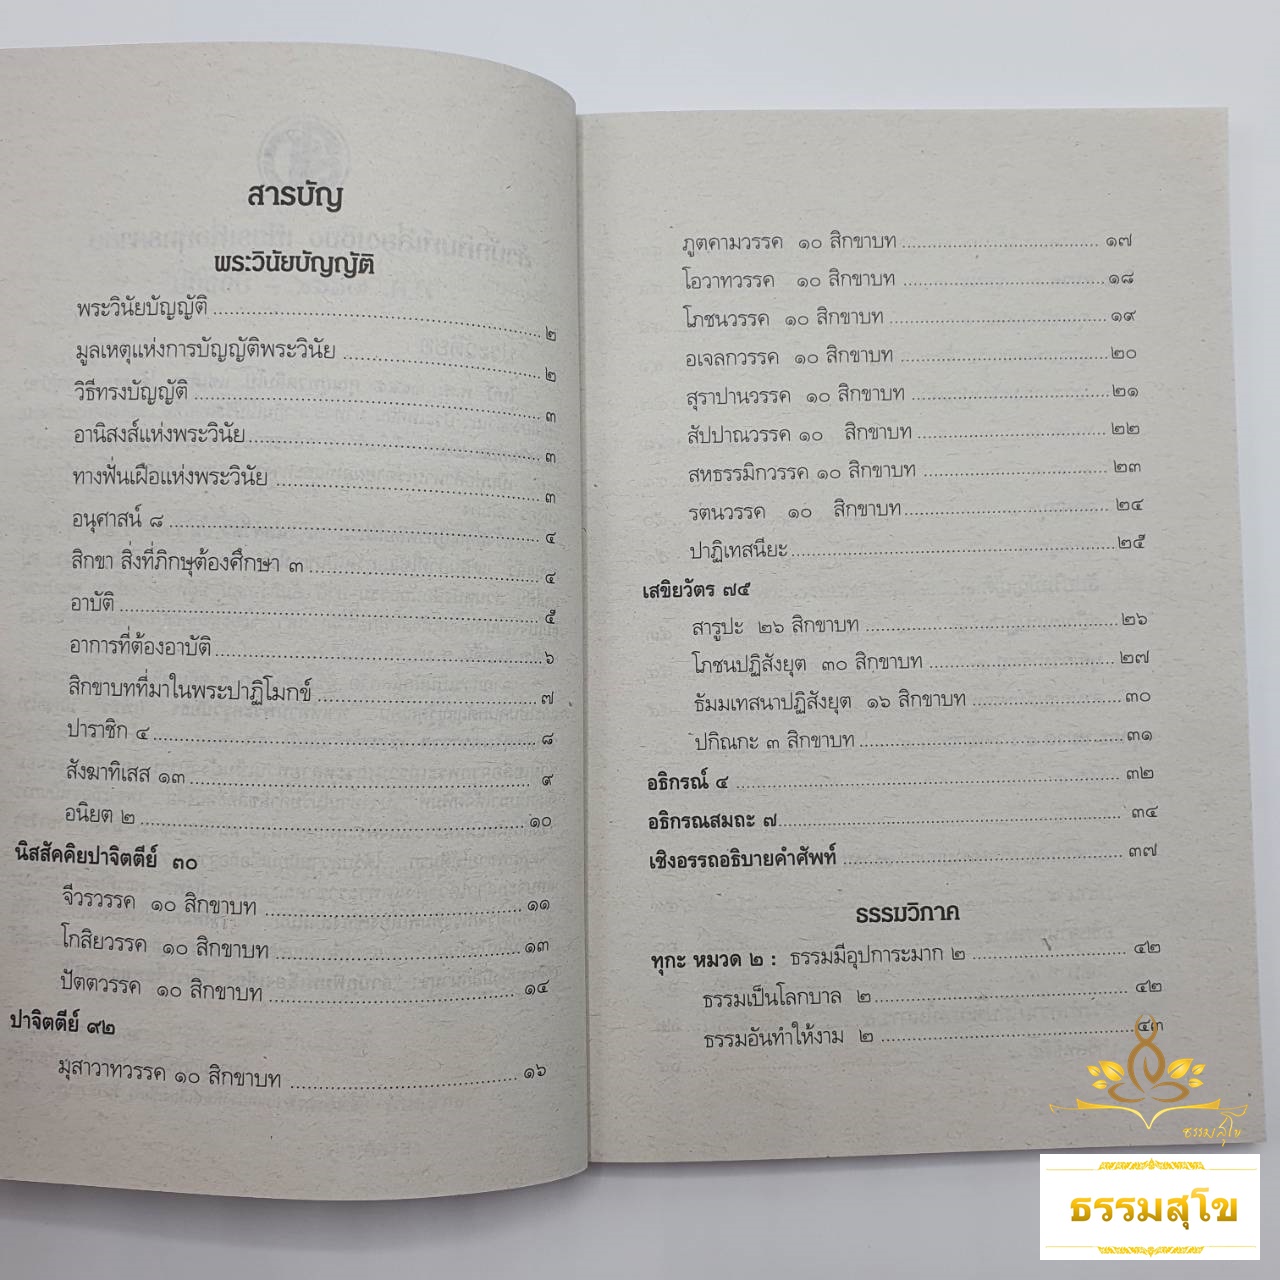 สารบัญ
พระวินัยบัญญัติ
พระวินัยบัญญัติ ๒
มูลเหตุแห่งการบัญญัติพระวินัย ๒
วิธีทรงบัญญัติ ๓
อานิสงส์แห่งพระวินัย ๓
ทางฟั่นเฝือแห่งพระวินัย ๓
อนุศาสน์ ๘ ๔
สิกขา สิ่งที่ภิกษุต้องศึกษา ๓ ๔
อาบัติ ๕
อาการที่ต้องอาบัติ ๖
สิกขาบทที่มาในพระปาฏิโมกข์ ๗
ปาราชิก ๔ ๘
สังฆาทิเสส ๑๓ ๙
อนิยต ๒ ๑๐
นิสสัคคิยปาจิตตีย์ ๓๐
จีวรวรรค ๑๐ สิกขาบท ๑๑
โกสิยวรรค ๑๐ สิกขาบท ๑๓
ปัตตวรรค ๑๐ สิกขาบท ๑๔
ปาจิตตีย์ ๙๒
มุสาวาทวรรค ๑๐ สิกขาบท ๑๖
ภูตคามวรรค ๑๐ สิกขาบท ๑๗
โอวาทวรรค ๑๐ สิกขาบท ๑๘
โภชนวรรค ๑๐ สิกขาบท ๑๙
อเจลกวรรค ๑๐ สิกขาบท ๒๐
สุราปานวรรค ๑๐ สิกขาบท ๒๑
สัปปาณวรรค ๑๐ สิกขาบท ๒๒
สหธรรมิกวรรค ๑๐ สิกขาบท ๒๓
รตนวรรค ๑๐ สิกขาบท ๒๔
ปาฏิเทสนียะ ๒๕
เสขิยวัตร ๗๕
สารูปะ ๒๖ สิกขาบท ๒๖
โภชนปฏิสังยุต ๓๐ สิกขาบท ๒๗
ธัมมเทสนาปฏิสังยุต ๑๖ สิกขาบท ๓๐
ปกิณกะ ๓ สิกขาบท ๓๑
อธิกรณ์ ๔ ๓๒
อธิกรณสมถะ ๗ ๓๔
เชิงอรรถอธิบายคำศัพท์ ๓๗
ธรรมวิภาค
ทุกะ หมวด ๒ : ธรรมมีอุปการะมาก ๒ ๔๒
ธรรมเป็นโลกบาล ๒ ๔๒
ธรรมอันทำให้งาม ๒ ๔๓
ธรรมสุโข
ธรรมสุโข